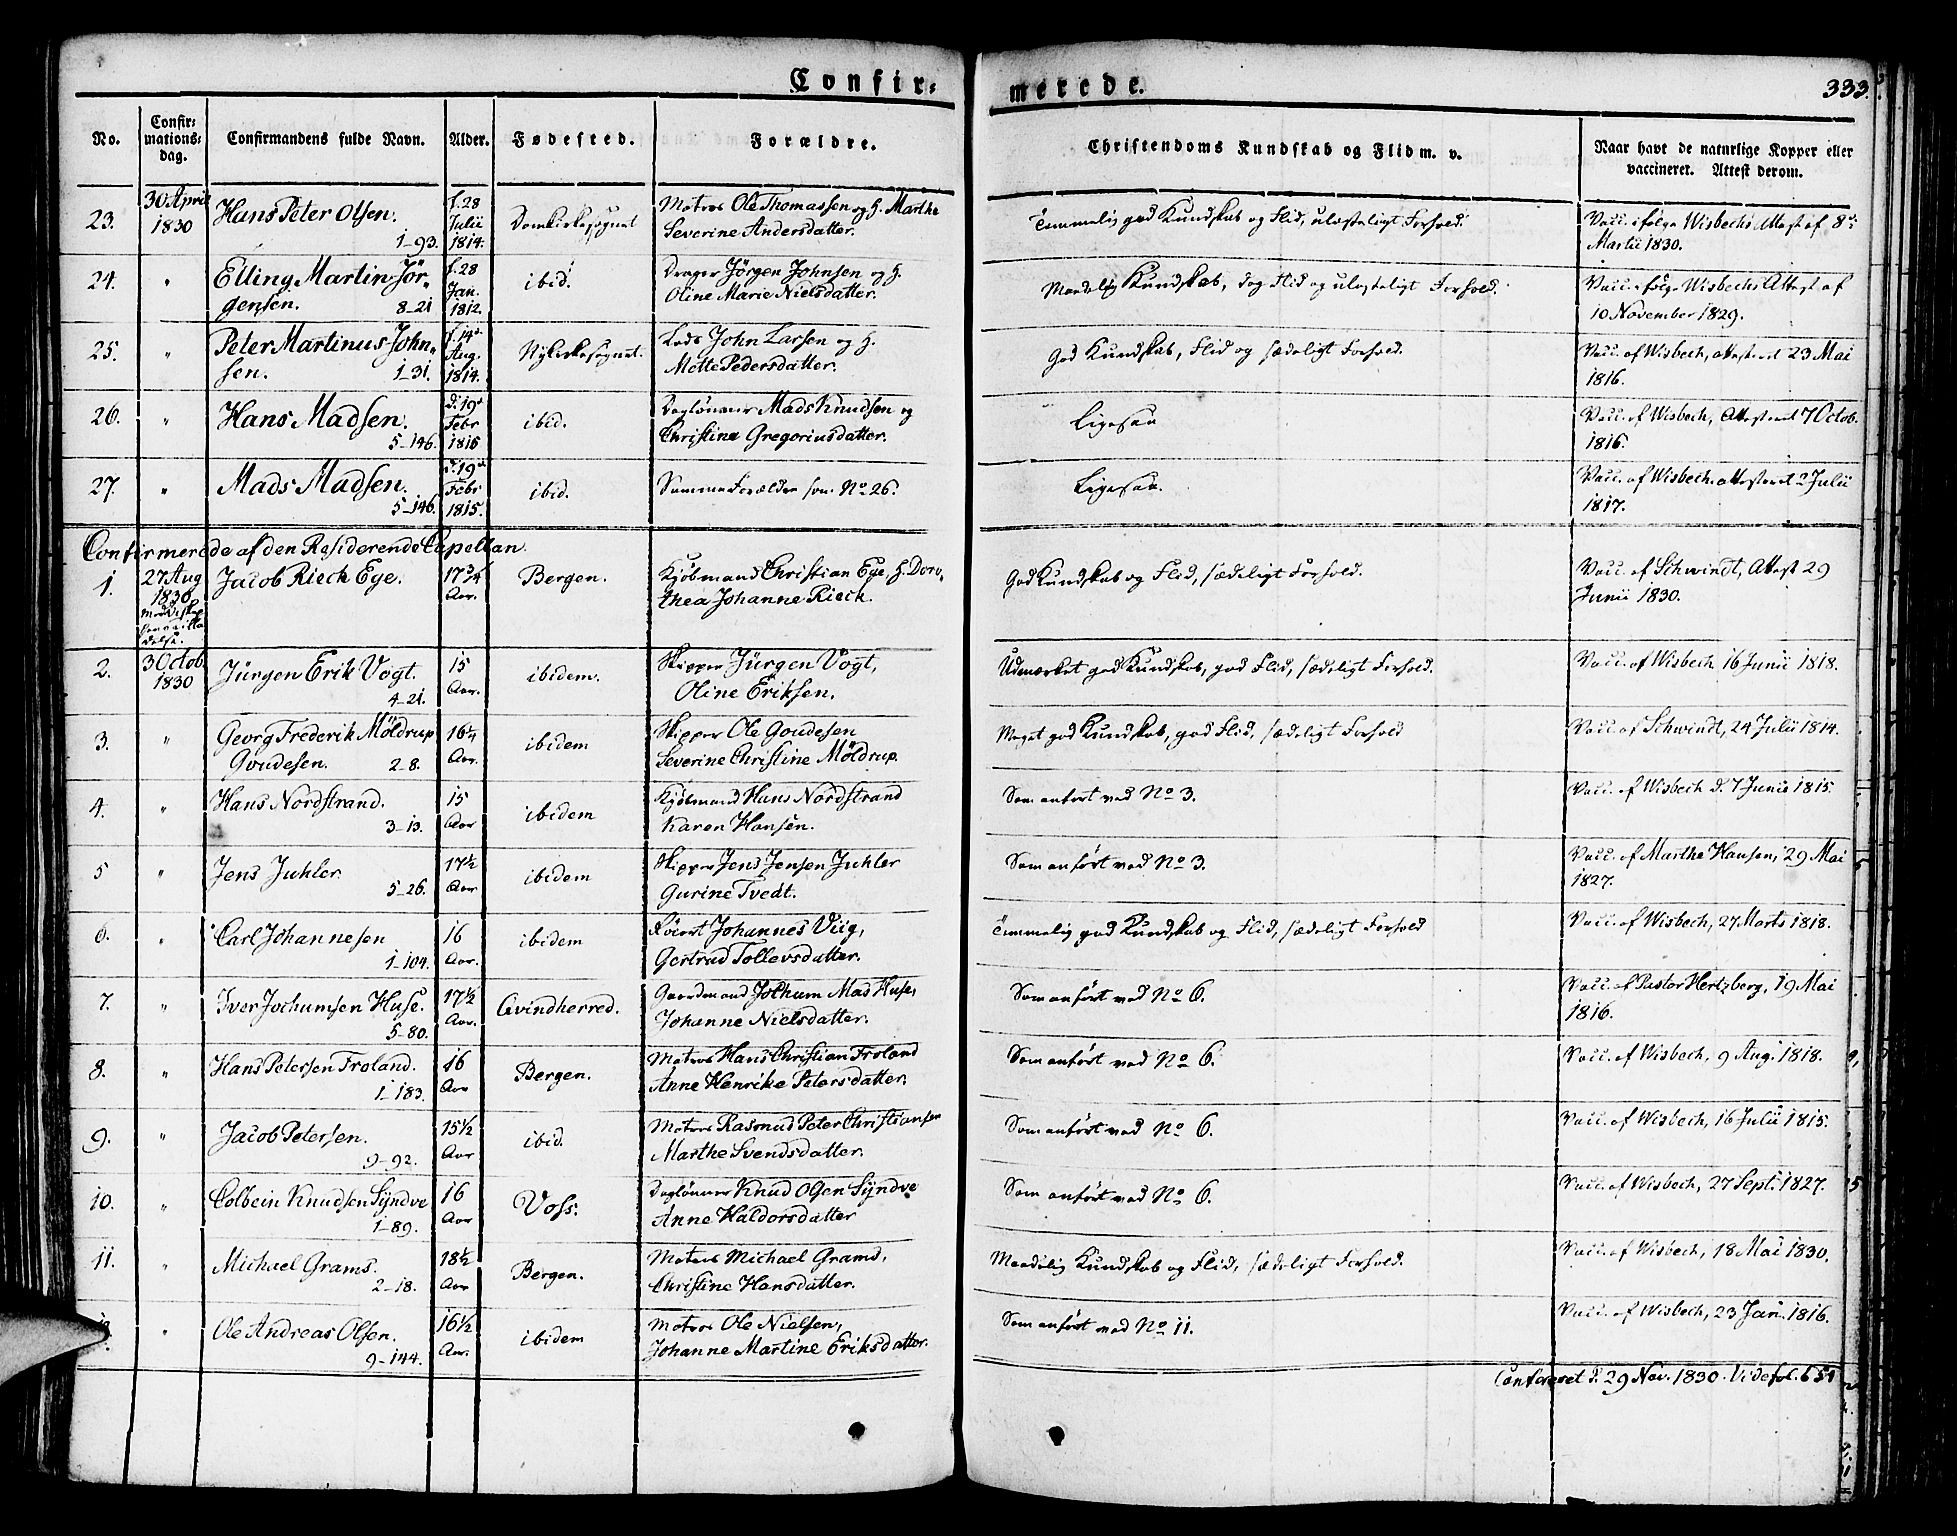 Confir-
merede.
333.
No.
Confir-
mations-
dag.
Confirmandens fulde Navn.
Alder.
Fødested.
Forældre.
Christendoms Kundskab og Flid m. v.
Naar havt de naturlige Kopper eller
vaccineret. Attest derom.
23.
30 April
1830
Hans Peter Olsen.
1-93.
f. 28
Julii
1814.
Domkirkesognet
Matros Ole Thomassen og H. Marthe
Severine Andersdatter.
Temmelig god Kundskab og Flid, ulasteligt Forhold.
Vacc. ifølge Wisbechs Attest af 8de
Martii 1830.
24.
"
Elling Martin Jör-
gensen.
8-21
f. 28
Jan.
1812.
ibid.
Drager Jörgen Johnsen og H.
Oline Marie Nielsdatter.
Maadelig Kundskab, dog Flid og ulasteligt Forhold.
Vacc. ifølge Wisbechs Attest af
10 November 1829.
25.
"
Peter Martinus John-
sen.
1-31.
f. 14de
Aug.
1814.
Nykirkesognet.
Lods John Larsen og H.
Mette Pedersdatter.
God Kundskab, Flid og sædeligt Forhold.
Vacc. af Wisbech, attesteret 23 Mai
1816.
26.
"
Hans Madsen.
5-146.
d. 19de
Febr
1815
ibid.
Daglönner Mads Knudsen og
Christine Gregoriusdatter.
Ligesaa
Vacc. af Wisbech, Attesteret 7 Octob.
1816.
27.
"
Mads Madsen.
5-146.
d. 19de
Febr
1815.
ibid.
Samme Forældre som No 26.
Ligesaa.
Vacc. af Wisbech, attesteret 2 Julii
1817.
Confirmerede af den Residerende Capellan.
1.
27 Aug
1830
Jacob Rieck Ege.
17 3/4
Aar.
Bergen.
Kjöbmand Christian Ege, H. Doro-
thea Johanne Rieck.
God Kundskab og Flid, sædeligt Forhold.
Vacc. af Schwindt, Attest 29
Junii 1830.
2.
3 Octob.
1830
Jürgen Erik Vogt.
4-21.
15
Aar.
ibidem.
Skipper Jürgen Vogt,
Oline Eriksen.
Udmærket god Kundskab, god Flid, sædeligt Forhold.
Vacc. af Wisbech 16 Junii 1818.
3.
"
Georg Frederik Möldrup
Goudesen.
2-8.
16 1/4
Aar.
ibidem
Skipper Ole Goudesen
Severine Christine Möldrup.
Meget god Kundskab, god Flid, sædeligt Forhold
Vacc. af Schwindt, 24 Julii 1814.
4.
"
Hans Nordstrand.
3-13.
15
Aar
ibidem
Kjöbmand Hans Nordstrand
Karen Hansen.
Som anfört ved No 3.
Vacc. af Wisbech d. 7 Junii 1815.
5
"
Jens Juhler
5-26.
17 1/2
Aar
ibidem
Skipper Jens Jensen Juhler
Gurine Tvedt.
Som anfört ved No 3.
Vacc. af Marthe Hansen, 29 Mai
1827.
6.
"
Carl Johannesen
1-104.
16
Aar.
ibidem
Johannes Viig,
Gertrud Tollevsdatter.
Temmelig god Kundskab og Flid, sædeligt Forhold
Vacc. af Wisbech, 27 Marts 1818.
7.
"
Iver Jochumsen Huse.
5-80.
17 1/2
Aar.
Qvindherred.
Gaardmand Jochum Mas Huse,
Johanne Nielsdatter.
Som anfört ved No 6.
Vacc. af Pastor Hertzberg, 19 Mai
1816.
8.
"
Hans Petersen Froland.
1-183.
16
Aar
Bergen.
Matros Hans Christian Froland
Anne Henrike Petersdatter.
Som anfört ved No 6.
Vacc. af Wisbech, 9 Aug. 1818.
9.
"
Jacob Petersen.
9-92.
15 1/2
Aar
ibid.
Matros Rasmud Peter Christiansen
Marthe Svendsdatter.
Som anfört ved No 6.
Vacc. af Wisbech, 16 Julii 1815.
10.
"
Colbein Knudsen Syndve
1-89.
16
Aar
Voss.
Daglönner Knud Olsen Syndve
Anne Haldorsdatter
Som anfört ved No 6.
Vacc. af Wisbech, 27 Sept. 1827.
11.
"
Michael Grams.
2-18.
18 1/2
Aar
Bergen.
Matros Michael Gramd,
Christine Hansdatter.
Maadelig Kundskab og Flid, sædeligt Forhold.
Vacc. af Wisbech, 18 Mai 1830.
"
Ole Andreas Olsen.
9-144.
16 1/2
Aar.
ibidem
Matros Ole Nielsen,
Johanne Martine Eriksdatter.
Som anfört ved No 11.
Vacc. af Wisbech, 23 Jan. 1816.
Confereret d. 29 Nov. 1830. Vide fol. 651